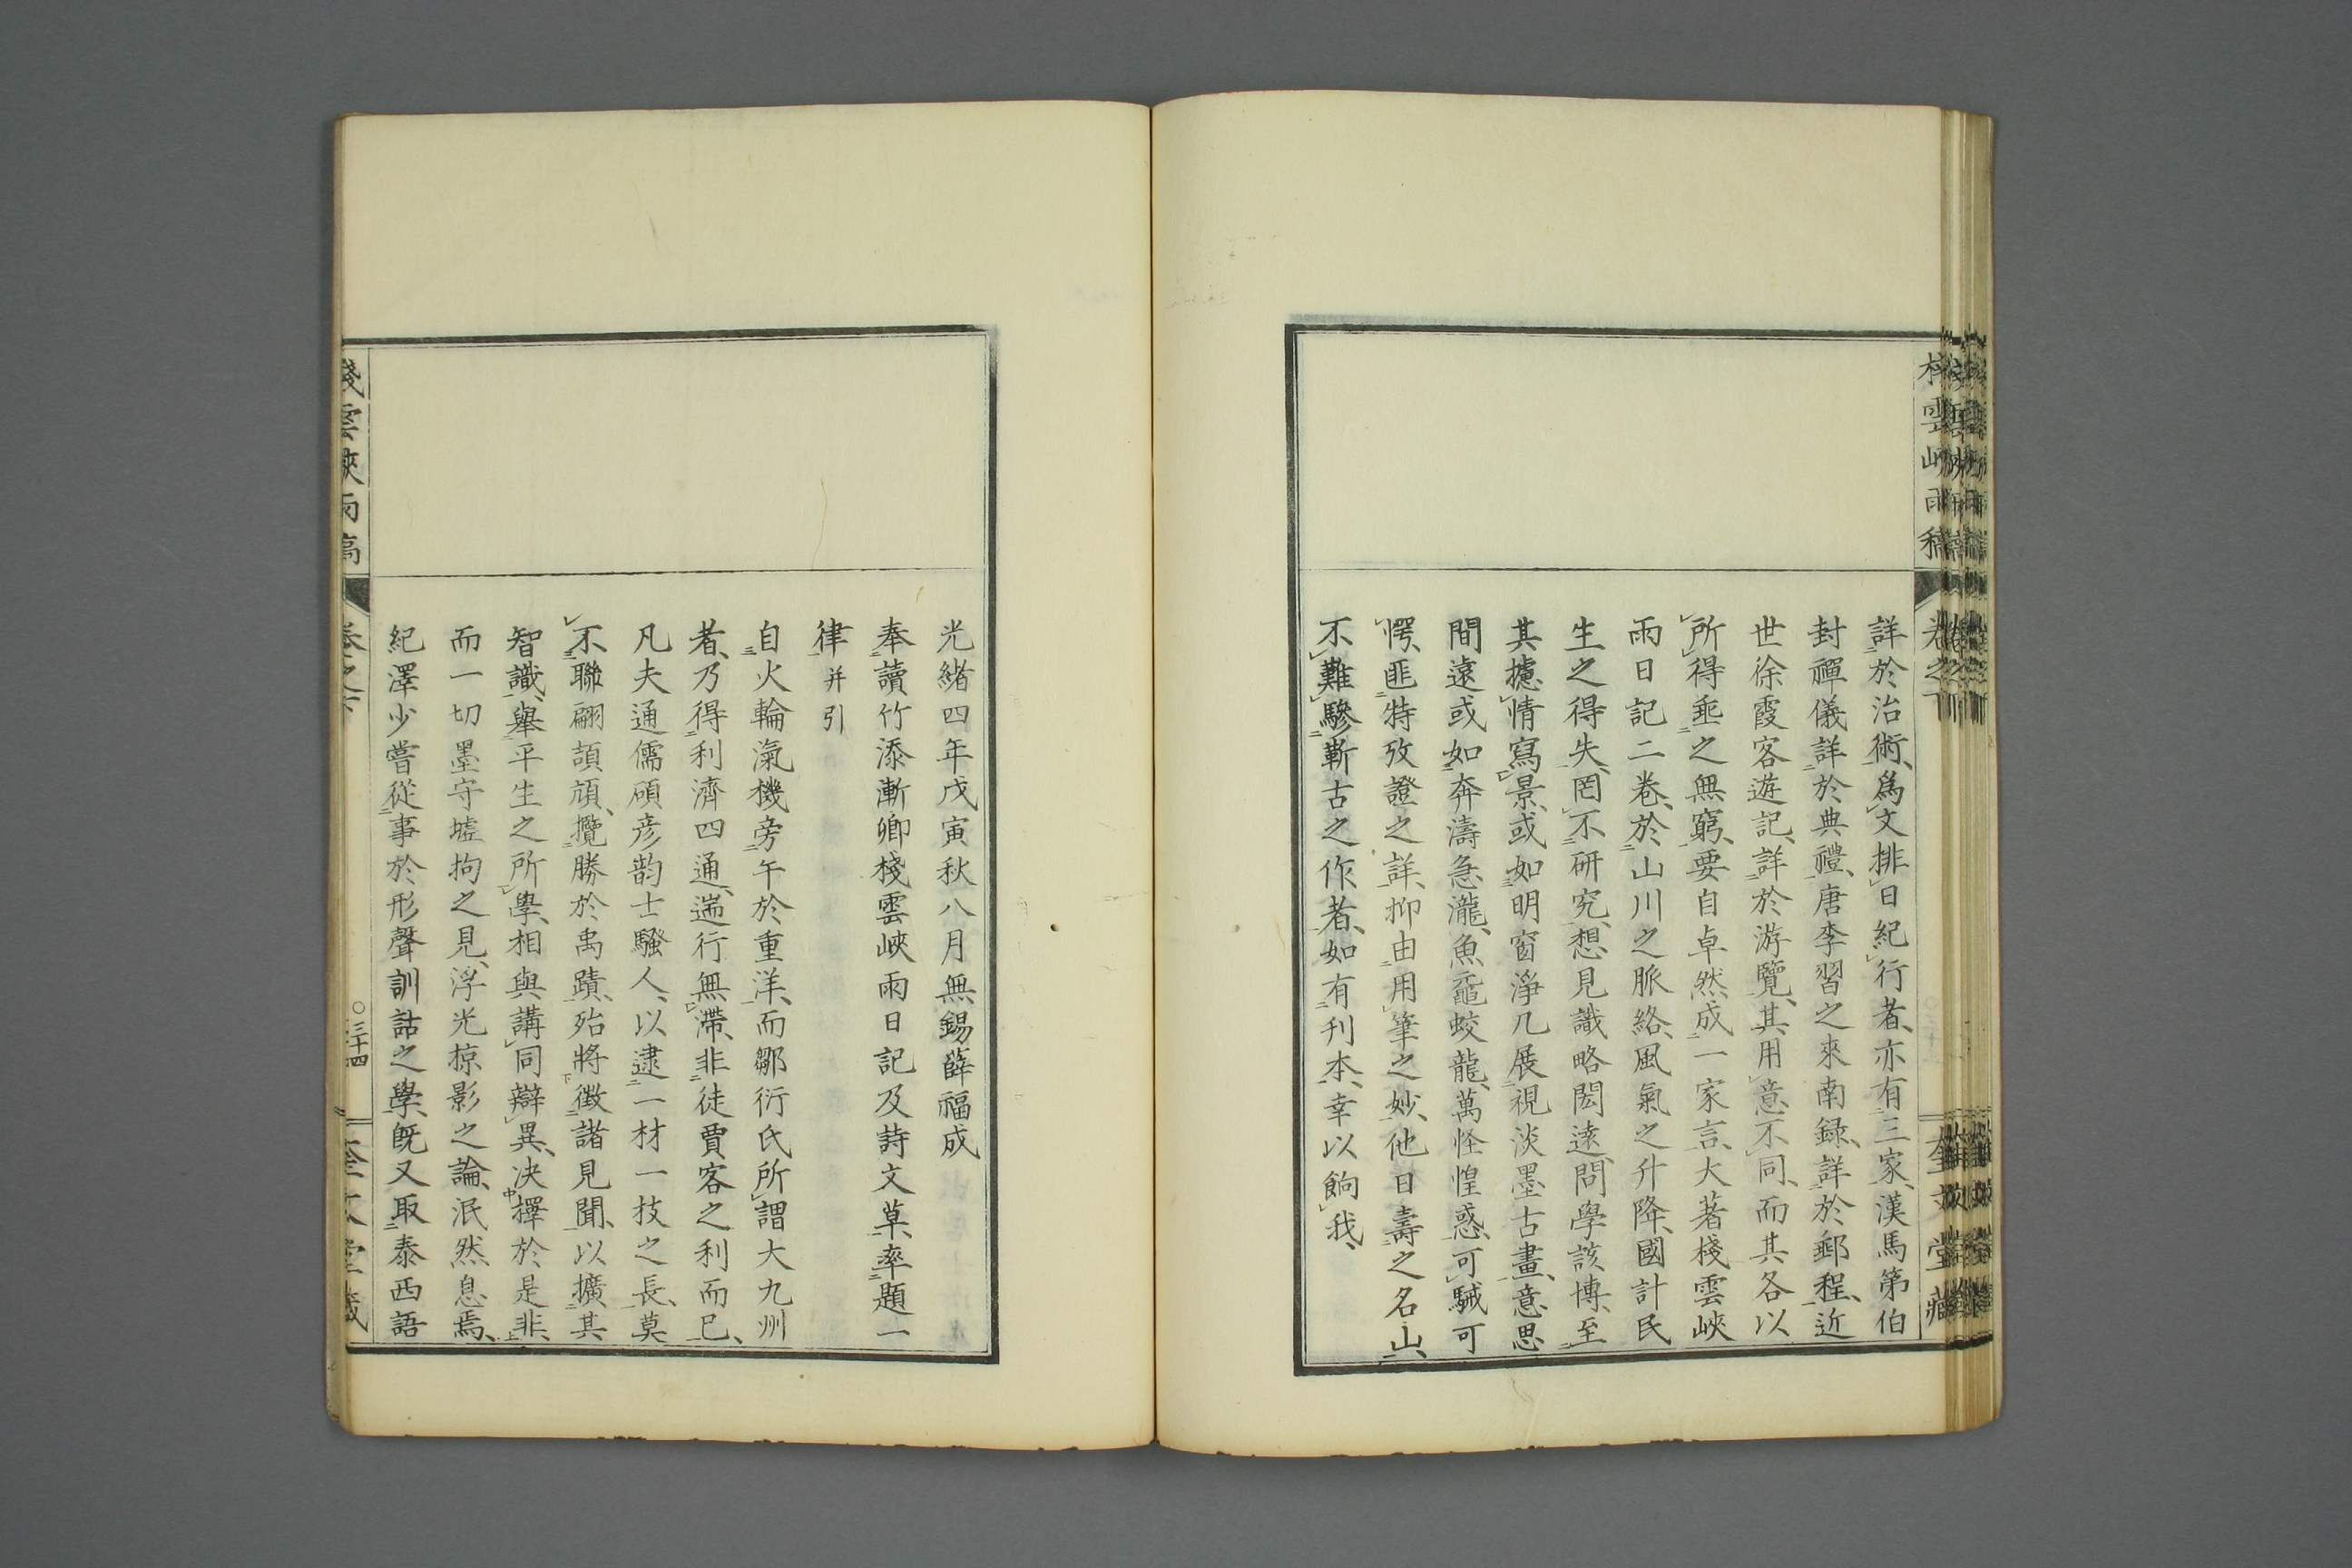 詳於治術、爲文排日紀行者、亦有三家、漢馬第伯
封禪儀詳於典禮、唐李習之來南録、詳於郵程、近
世徐霞客遊記、詳於游覽、其用意不同、而其各以
所得垂之無窮、要自卓然成一家言、大著棧雲峽
雨日記二卷、於山川之脈絡、風氣之升降、國計民
生之得失、罔不研究、想見識略閎遠、問學該博、至
其攄情寫景、或如明窗淨几、展視淡墨古畫、意思
間遠、或如奔濤急瀧、魚黿蛟龍、萬怪惶惑、可駴可
愕、匪特攷證之詳、抑由用筆之妙、他日壽之名山、
不難驂靳古之作者、如有刊本、幸以餉我、
光緒四年戊寅秋八月無錫薛福成
奉讀竹添漸卿棧雲峽雨日記及詩文草、率題一
律并引
自火輪瀛機旁午於重洋、而鄒衍氏所謂大九州
者、乃得利濟四通、遄行無滯、非徒賈客之利而已、
凡夫通儒碩彦韵士騷人、以逮一材一技之長、莫
不聯翩頡頏、攬勝於禹蹟、殆將徴諸見聞、以擴其
智識、舉平生之所學、相與講同辯異、决擇於是非、
而一切墨守墟拘之見、浮光掠影之論、泯然息焉、
紀澤少嘗從事於形聲訓詁之學、旣又取泰西語
棧雲峽雨稿
卷之下
三十四
奎文堂藏